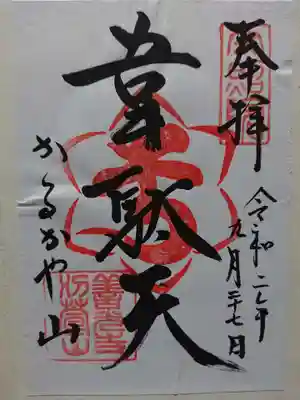 奉拝
令和二年
九月二十七日
韋駄天
かるかや山